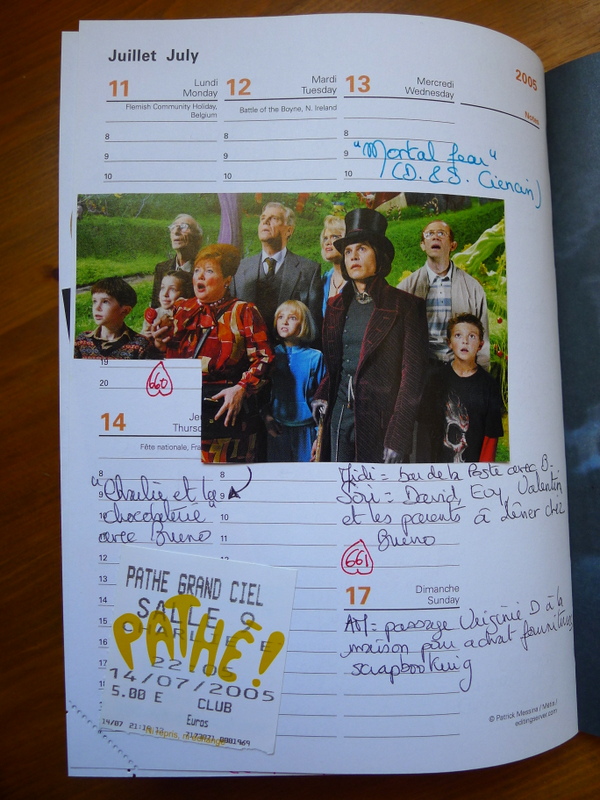 Juillet July
2005
Notes
11 Lundi
Monday
Flemish Community Holiday,
Belgium
8
9
10
12 Mardi
Tuesday
Battle of the Boyne, N. Ireland
8
9
10
13 Mercredi
Wednesday
8
9
10
"Mortal fear"
(D. & S.
19
20
660
14
Thursd
Fête nationale, Fra
8
9
10
11
12
13
14
15
16
17
"Charlie et la
chocolaterie"
avec Bueno
8
9
10
11
12
Midi = bar de la Poste avec B.
Soir = David, Valentin
et les parents à dîner chez
Bueno
661
17 Dimanche
Sunday
AM = passage Virginie D à la
maison pour achat fournitures
scrapbooking
PATHE GRAND CIEL
SALLE 9
PATHÉ!
14/07/2005
5.00 E CLUB
Euros
© Patrick Messina / Métis /
editingserver.com